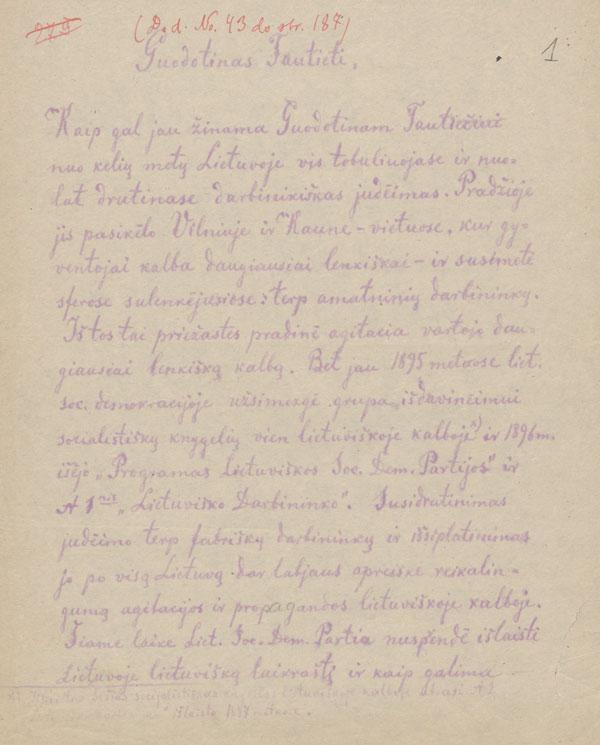 (Dod. No. 43 do str. 187)
1
Guodotinas Tautieti,
Kaip gal jau žinama Guodotinam Tautiečiui
nuo kelių metų Lietuvoje vis tobuliuojase ir nuo-
lat drutinase darbininkiškas judėimas. Pradžioje
jis pasikėlo Vilniuje ir Kaune – vietuose, kur gy-
ventojai kalba daugiausiai lenkiškai – ir susimetė
sferose sulenkėjusiose: terp amatninių darbininkų.
Iš tos tai priežastes pradinė agitacia vartojo dau-
giausiai lenkišką kalbą. Bet jau 1895 metuose liet.
soc. demokracijoje užsimezgė grupa išdavinėimui
socialistiškų knygelių vien lietuviškoje kalboje*) ir 1896 m.
išėjo „Programas Lietuviškos Soc. Dem. Partijos" ir
№ 1 „Lietuviško Darbininko". Susidrutinimas
judėimo terp fabriškų darbininkų ir išsiplatinimas
jo po visą Lietuvą dar labjaus apreiškė reikalin-
gumą agitacijos ir propagandos lietuviškoje kalboje.
Šiame laike Liet. Soc. Dem. Partia nuspendė išlaisti
Lietuvoje lietuvišką laikraštį ir kaip galima
socijalistiškas kalboje
išlaista 1897 metuose.